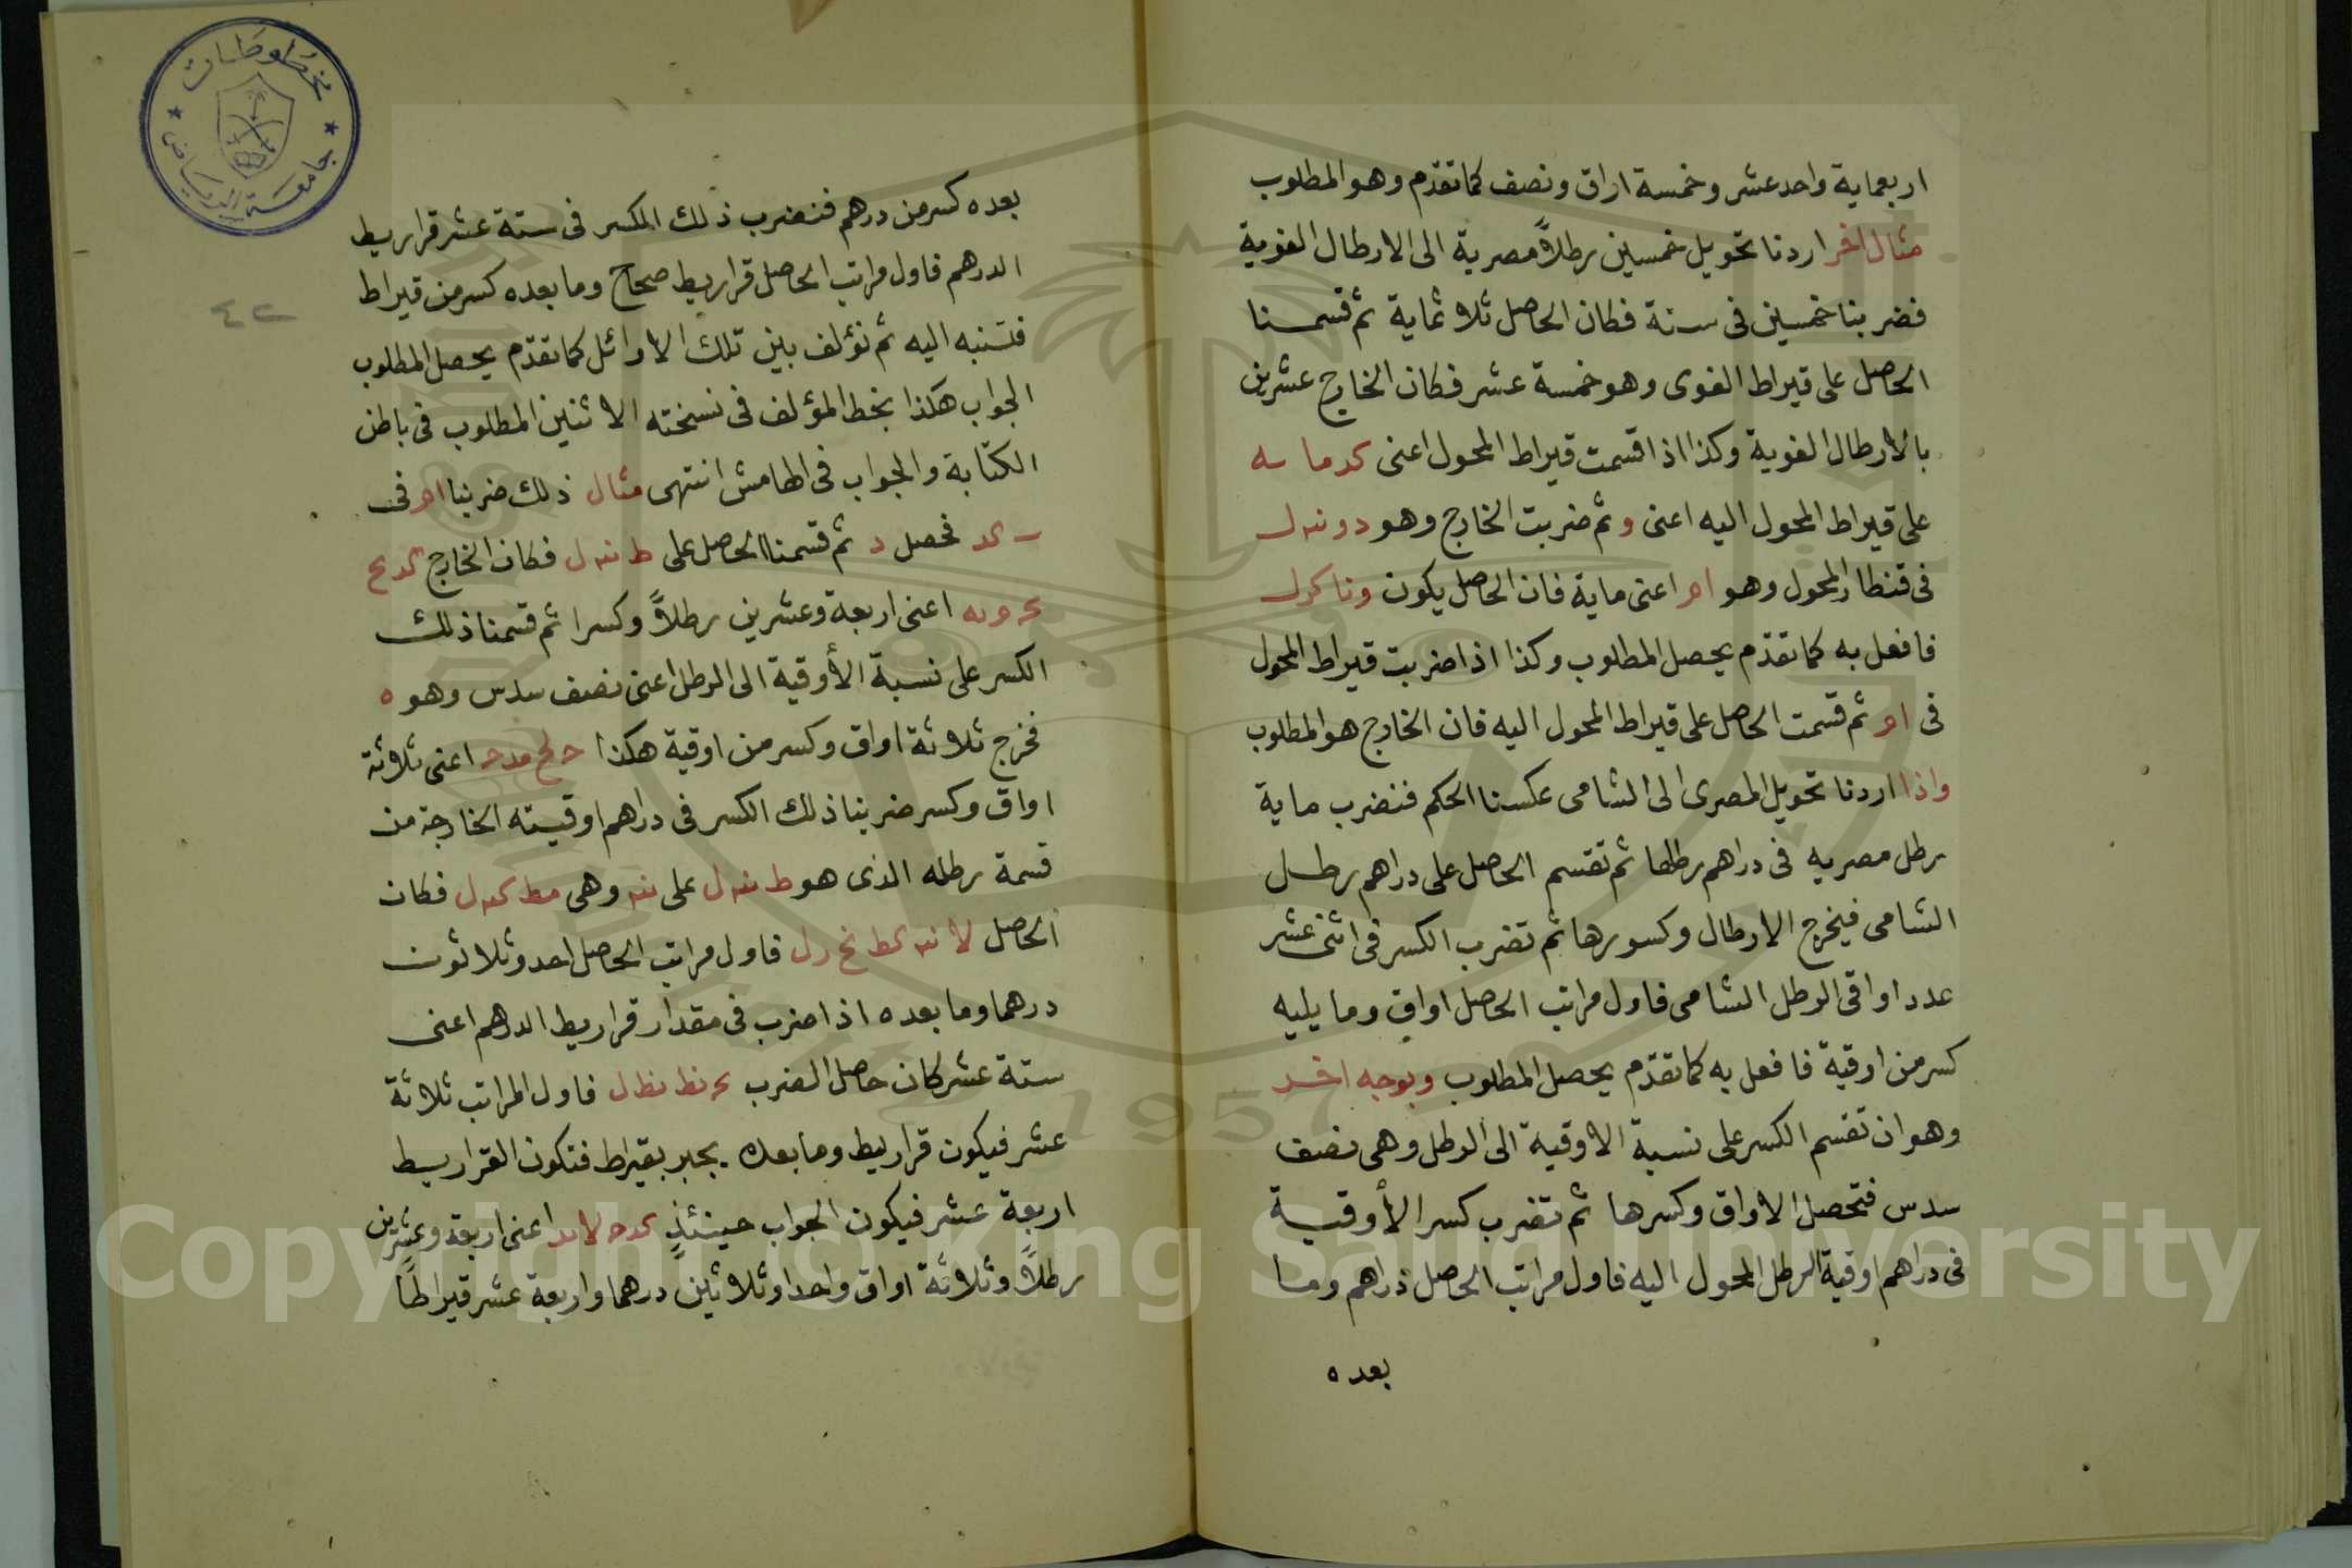 اربعماية واحد عشر وخمسة اواق ونصف كما تقدّم وهو المطلوب
مثال اخر اردنا تحويل خمسين رطلاً مصرية الى الارطال الفوية
فضربنا خمسين فى ستة فكان الحاصل ثلاثماية ثم قسمنا
الحاصل على قيراط الفوى وهو خمسة عشر فكان الخارج عشرين
بالارطال الفوية وكذا اذا قسمت قيراط المحول اعنى
على قيراط المحول اليه اعنى و ثم ضربت الخارج وهو
فى قنطار المحول وهو ام اعنى ماية فان الحاصل يكون
فافعل به كما تقدّم يحصل المطلوب وكذا اذا ضربت قيراط المحول
فى ام ثم قسمت الحاصل على قيراط المحول اليه فان الخارج هو المطلوب
واذا اردنا تحويل المصرى الى الشامى عكسنا الحكم فنضرب ماية
رطل مصريه فى دراهم رطلها ثم تقسم الحاصل على دراهم رطل
الشامى فيخرج الارطال وكسورها ثم تضرب الكسر فى اثنى عشر
عدد اواقى الرطل الشامى فاول مراتب الحاصل اواق وما يليه
كسر من اوقية فافعل به كما تقدّم يحصل المطلوب وبوجه اخر
وهو ان تقسم الكسر على نسبة الاوقية الى الرطل وهى نصف
سدس فتحصل الاواق وكسرها ثم تضرب كسر الأوقية
فى دراهم اوقية الرطل المحول اليه فاول مراتب الحاصل دراهم وما
بعده
مخطوطات
جامعة الرياض
٤٢
بعده كسر من درهم فنضرب ذلك الكسر فى ستة عشر قراريط
الدرهم فاول مراتب الحاصل قراريط صحاح وما بعده كسر من قيراط
فتنبه اليه ثم نؤلف بين تلك الاوائل كما تقدّم يحصل المطلوب
الجواب هكذا بخط المؤلف فى نسخته الاثنين المطلوب فى باطن
الكتابة والجواب فى الهامش انتهى مثال ذلك ضربنا ام فى
فحصل د ثم قسمنا الحاصل على ط نه ل فكان الخارج
اعنى اربعة وعشرين رطلاً وكسرا ثم قسمنا ذلك
الكسر على نسبة الأوقية الى الرطل اعنى نصف سدس وهو ه
فخرج ثلاثة اواق وكسر من اوقية هكذا اعنى ثلاثة
اواق وكسر ضربنا ذلك الكسر فى دراهم اوقيته الخارجة من
قسمة رطله الذى هو ط نه ل على نه وهى مط كه ل فكان
الحاصل لا نه كط نح ل فاول مراتب الحاصل احد وثلاثون
درهما وما بعده اذا ضرب فى مقدار قراريط الدرهم اعنى
ستة عشر كان حاصل الضرب فاول المراتب ثلاثة
عشر فيكون قراريط وما بعده يجبر بقيراط فتكون القراريط
اربعة عشر فيكون الجواب حينئذٍ كد ح لا يد اعنى اربعة وعشرين
رطلاً وثلاثة اواق واحدا وثلاثين درهما واربعة عشر قيراطًا
1957
Copyright © King Saud University